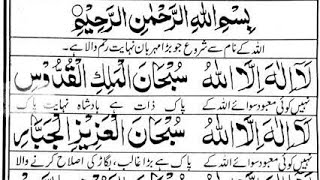 بِسْمِ اللهِ الرَّحْمٰنِ الرَّحِيْمِ
اللہ کے نام سے شروع جو بڑا مہربان نہایت رحم والا ہے۔
لَآ اِلٰهَ اِلَّا اللهُ سُبْحَانَ الْمَلِكِ الْقُدُّوْسِ
نہیں کوئی معبود سوائے اللہ کے پاک ذات ہے بادشاہ نہایت پاک
لَآ اِلٰهَ اِلَّا اللهُ سُبْحَانَ الْعَزِيْزِ الْجَبَّارِ
نہیں کوئی معبود سوائے اللہ کے پاک ہے بڑا غالب، بگاڑ کی اصلاح کرنے والا